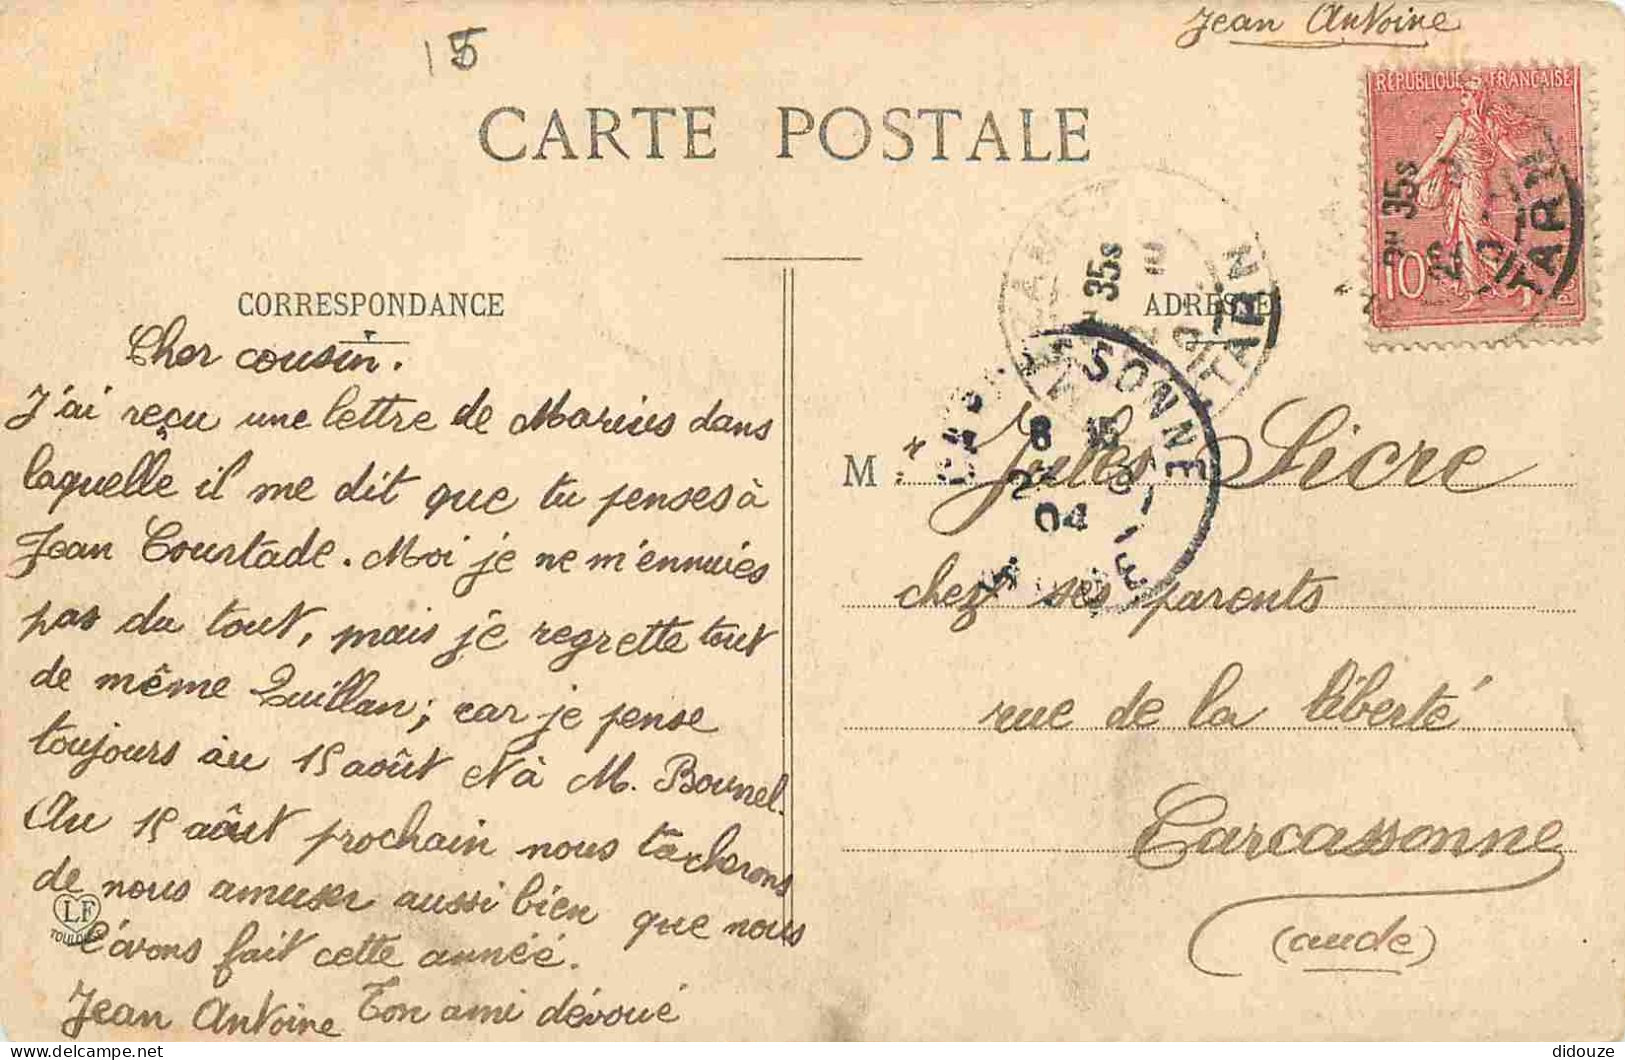 Jean Antoine
15
CARTE POSTALE
REPUBLIQUE FRANÇAISE
10
35s
TARN
35s
TARN
CORRESPONDANCE
ADRESSE
Cher cousin.
J'ai reçu une lettre de Marius dans
laquelle il me dit que tu penses à
Jean Courtade. Moi je ne m'ennuies
pas du tout, mais je regrette tout
de même Quillan; car je pense
toujours au 15 août et à M. Bounel.
Au 15 août prochain nous tacherons
de nous amuser aussi bien que nous
l'avons fait cette année.
Jean Antoine Ton ami dévoué
LF
TOULOUSE
CARCASSONNE
8 15
04
M Jules Sicre
chez ses parents
rue de la liberté
Carcassonne
(aude)
didouze